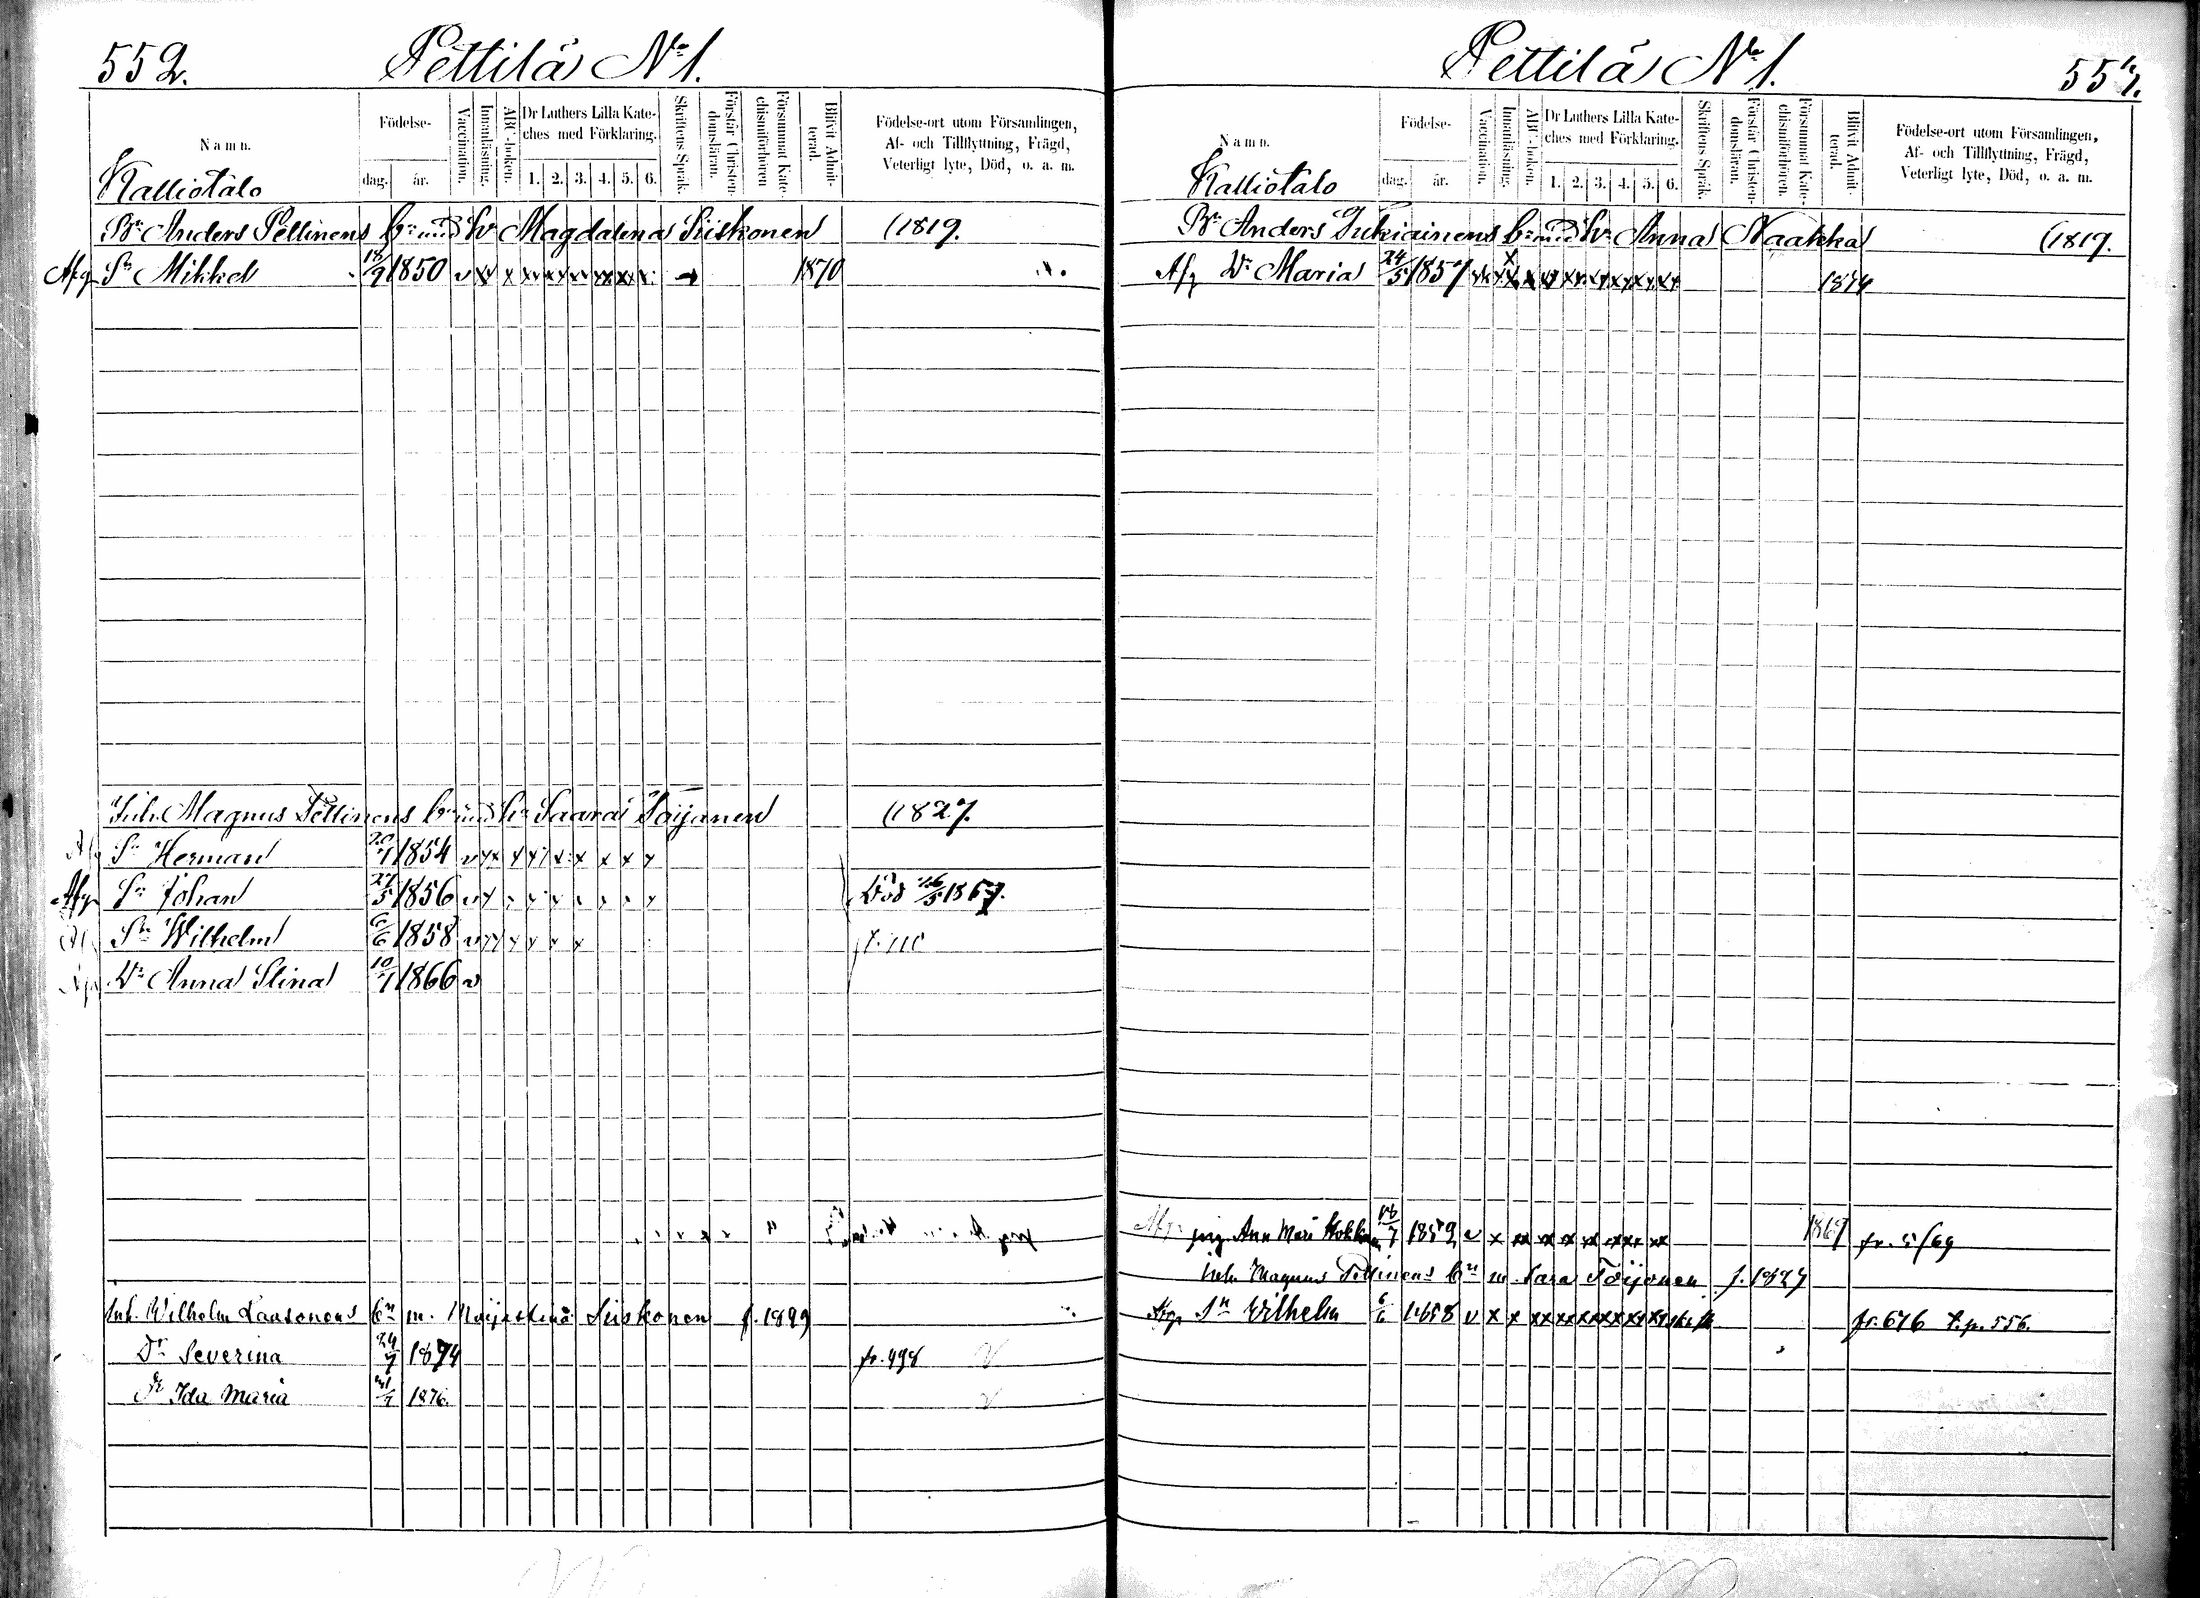 552.
Pettilä No 1.
Namn.
Födelse-
dag.
år.
Vaccination.
Innanläsning.
ABC-boken.
Dr Luthers Lilla Kate-
ches med Förklaring.
1. 2. 3. 4. 5. 6.
Skriftens Språk.
Förstår Christen-
domsläran.
Försummat Kate-
chismiförhören
Blifvit Admit-
terad.
Födelse-ort utom Församlingen,
Af- och Tillflyttning, Frägd,
Veterligt lyte, Död, o. a. m.
Kalliotalo
Bn Anders Pellinens bn med h. Magdalena Siiskonen (1819.
Afg Sn Mikkel 18/9 1850 v xx x xx xx xx xx xx x 1870
Inh. Magnus Pellinens bn med hu Saara Töijonen (1827.
Sn Herman 20/1 1854 v x x x x x x x x x
Afg Sn Johan 27/5 1856 v x x x x x x x x Död 16/5 1867.
Sn Wilhelm 6/6 1858 v x x x x x x
Dr Anna Stina 10/1 1866 v
Inh. Wilhelm Laasonens bn m. Maija Stina Siiskonen f. 1899
Dr Severina 24/7 1874 fr. 498 v
Dr Ida Maria 1876. v
Pettilä No 1.
Namn.
Födelse-
dag.
år.
Vaccination.
Innanläsning.
ABC-boken.
Dr Luthers Lilla Kate-
ches med Förklaring.
1. 2. 3. 4. 5. 6.
Skriftens Språk.
Förstår Christen-
domsläran.
Försummat Kate-
chismiförhören.
Blifvit Admit-
terad.
Födelse-ort utom Församlingen,
Af- och Tillflyttning, Frägd,
Veterligt lyte, Död, o. a. m.
Kalliotalo
Bn Anders Sukiainens bn med hu Anna Naakka (1819.
Afg Dr Maria 24/5 1857 1874
Afg pig. Ann Mari 16/7 1852 v x xx xx xx xx xx xx xx 1869 fr. 5/69
Inh. Magnus Pellinens bn m. Sara Töijonen f. 1827
Afg Sn Wilhelm 6/6 1858 v x x xx xx xx xx xx xx fr. 676 t. p. 556.